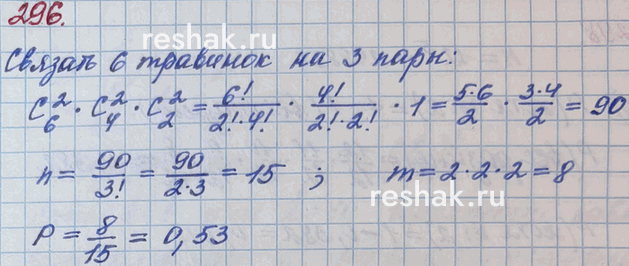 296.
reshak.ru
Связать 6 травинок на 3 пары:
C₆² · C₄² · C₂² = 6!/(2!·4!) · 4!/(2!·2!) · 1 = 5·6/2 · 3·4/2 = 90
n = 90/3! = 90/(2·3) = 15 ; m = 2·2·2 = 8
reshak.ru
P = 8/15 = 0,53